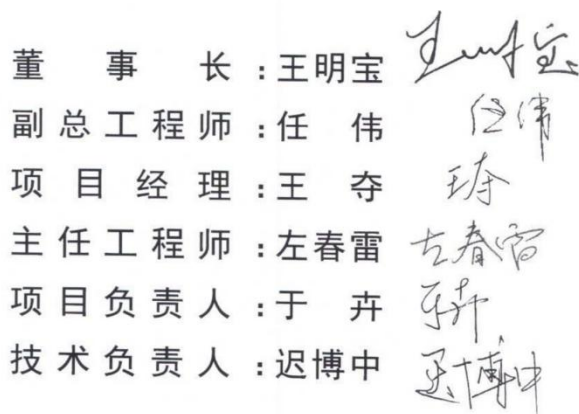 董事长:王明宝 王明宝
副总工程师:任伟 任伟
项目经理:王夺 王夺
主任工程师:左春雷 左春雷
项目负责人:于卉 于卉
技术负责人:迟博中 迟博中